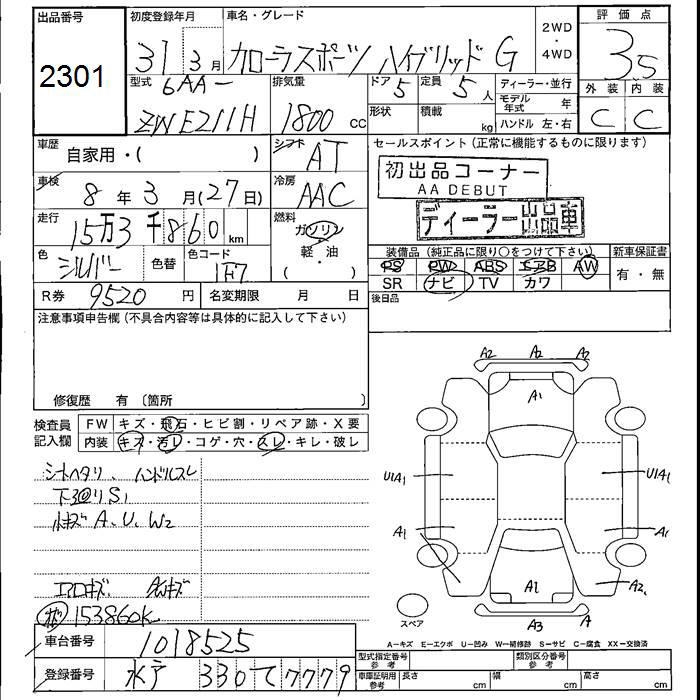 出品番号
2301
初度登録年月
31年3月
車名・グレード
カローラスポーツ ハイブリッド G
2WD・4WD
評価点
3.5
外装 内装
C C
型式
6AA-
ZWE211H
排気量
1800 cc
ドア 5
定員 5人
形状
積載 kg
ディーラー・並行
モデル年式 年
ハンドル 左・右
車歴
自家用・( )
シフト
AT
セールスポイント(正常に機能するものに限ります)
初出品コーナー
AA DEBUT
ディーラー出品車
車検
8年3月(27日)
冷房
AAC
走行
15万3千860km
燃料
ガソリン
軽・油
( )
色
シルバー
色替
色コード
1F7
装備品(純正品に限り○をつけて下さい)
PS PW ABS エアB AW
SR ナビ TV カワ
新車保証書
有・無
後日品
R券 9520円
名変期限 月 日
注意事項申告欄(不具合内容等は具体的に記入して下さい)
修復歴 有〔箇所 〕
検査員記入欄
FW キズ・飛石・ヒビ割・リペア跡・X要
内装 キズ・汚レ・コゲ・穴・スレ・キレ・破レ
シートヘタリ、ハンドルスレ
小キズ A、U、W2
エアロキズ
153860K
A2 A2 A
A1
U1A1 U1A1
A1 A1
A1
A2
A3 A
スペア
A-キズ E-エクボ U-凹み W-補修跡 S-サビ C-腐食 XX-交換済
車台番号 1018525
登録番号 水戸 330 て 7779
型式指定番号 参考
類別区分番号 参考
車庫証明用 参考
長さ cm
幅 cm
高さ cm